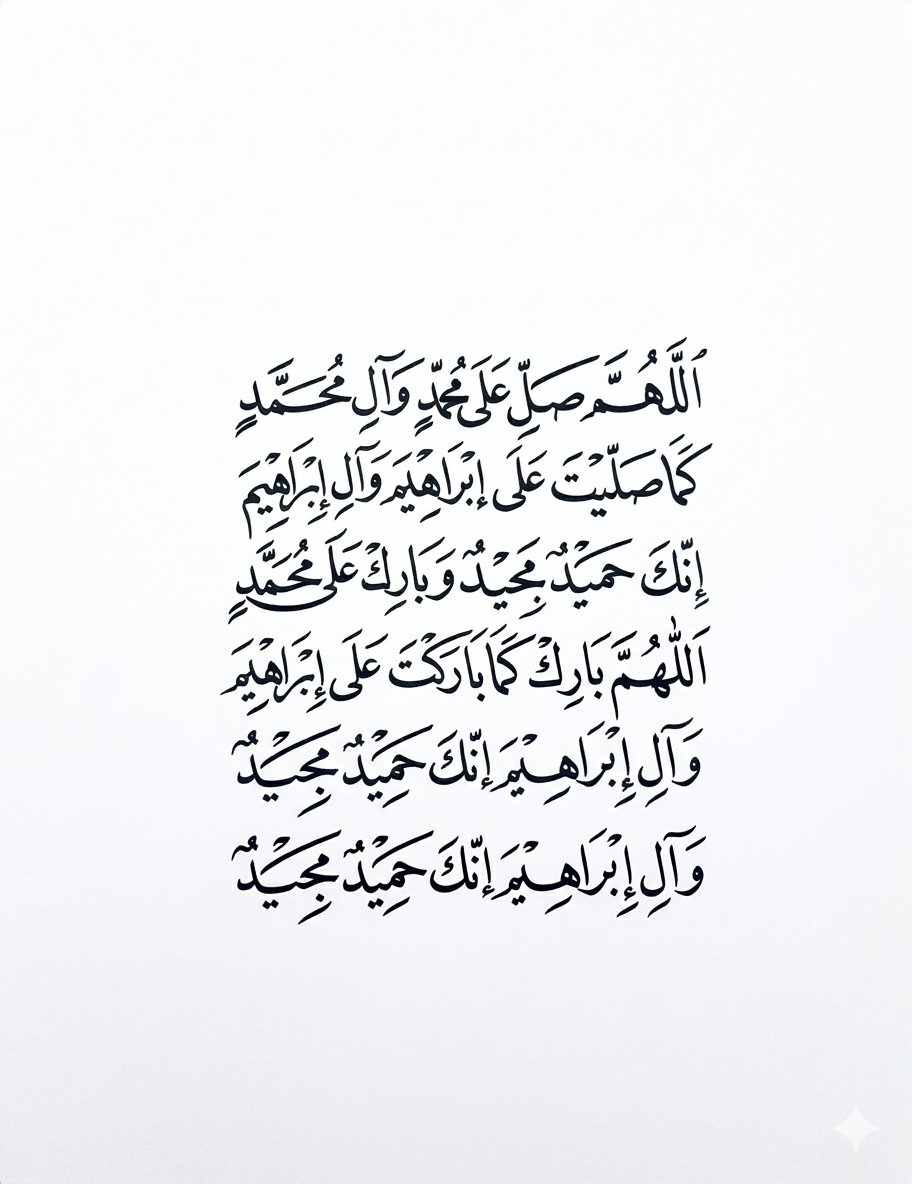 ٱللَّهُمَّ صَلِّ عَلَى مُحَمَّدٍ وَآلِ مُحَمَّدٍ
كَمَا صَلَّيْتَ عَلَى إِبْرَاهِيْمَ وَآلِ إِبْرَاهِيْمَ
إِنَّكَ حَمَيْدٌ مَجِيْدٌ وَبَارِكْ عَلَى مُحَمَّدٍ
اَللّٰهُمَّ بَارِكْ كَمَا بَارَكْتَ عَلَى إِبْرَاهِيْمَ
وَآلِ إِبْرَاهِيْمَ إِنَّكَ حَمِيْدٌ مَجِيْدٌ
وَآلِ إِبْرَاهِيْمَ إِنَّكَ حَمِيْدٌ مَجِيْدٌ